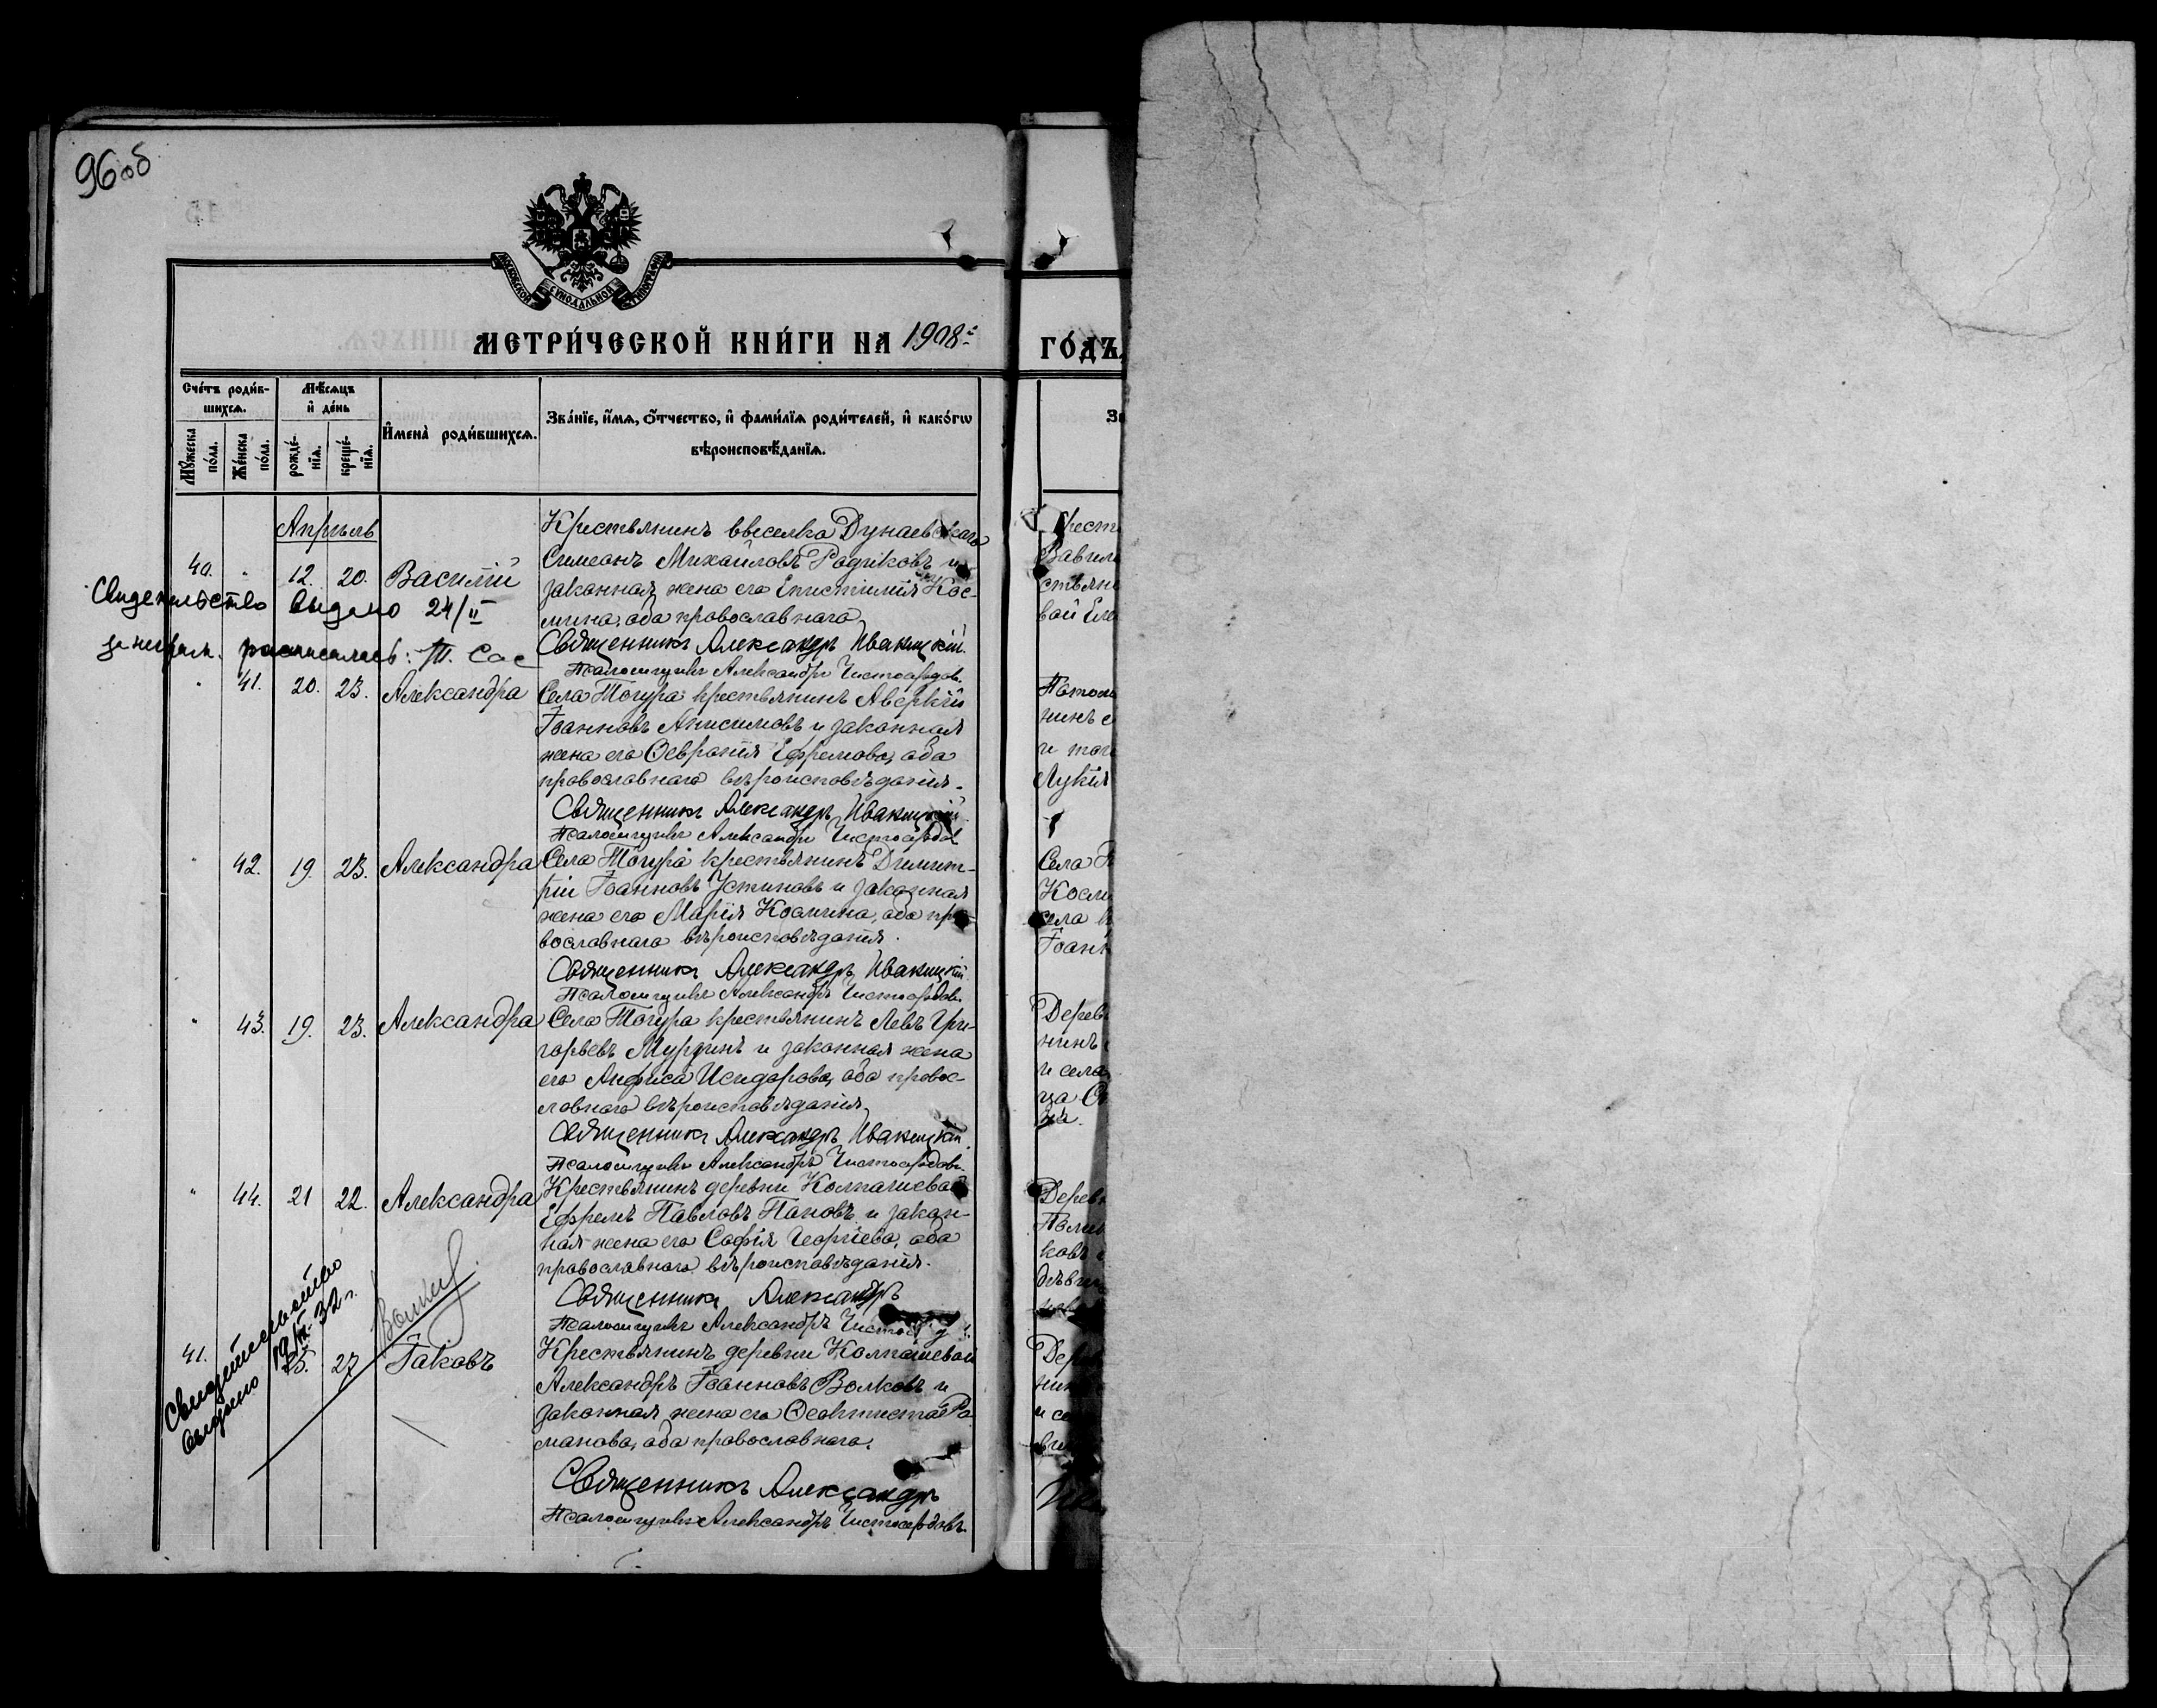 96 об
МОСКОВСКОЙ СѴНОДАЛЬНОЙ ТИПОГРАФІИ
МЕТРИ́ЧЕСКОЙ КНИ́ГИ НА 1908 й
ГО́ДЪ
Сче́тъ роди́в-
шихсѧ.
Мꙋ́жеска
по́ла.
Же́нска
по́ла.
Мѣ́сѧцъ
и҆ де́нь
рожде́-
нїѧ.
креще́-
нїѧ.
И҆мена̀ роди́вшихсѧ.
Зва́нїе, и҆́мѧ, ѻ҆́тчество, и҆ фами́лїѧ роди́телей, и҆ како́гѡ
вѣроисповѣ́данїѧ.
Апрѣль
40. " 12. 20. Василій
Крестьянинъ выселка Дунаевскаго
Симеонъ Михайловъ Родиковъ и
законная жена его Епистимія Кос-
мина, оба православнаго.
Священникъ Александръ Иваницкій.
Псаломщикъ Александръ Чистосердовъ.
Свидетельство выдано 24/II
за неграм. расписалась: М. Сос
" 41. 20. 23. Александра
Села Тогура крестьянинъ Аверкій
Іоанновъ Анисимовъ и законная
жена его Ѳевронія Ефремова, оба
православнаго вѣроисповѣданія.
Священникъ Александръ Иваницкій.
Псаломщикъ Александръ Чистосердов
" 42. 19. 23. Александра
Села Тогура крестьянинъ Димит-
рій Іоанновъ Устиновъ и законная
жена его Марія Космина, оба пра-
вославнаго вѣроисповѣданія.
Священникъ Александръ Иваницкій
Псаломщикъ Александръ Чистосердовъ.
" 43. 19. 23. Александра
Села Тогура крестьянинъ Левъ Гри-
горьевъ Мурзинъ и законная жена
его Анфиса Исидорова, оба правос-
лавнаго вѣроисповѣданія.
Священникъ Александръ Иваницкій.
Псаломщикъ Александръ Чистосердовъ.
" 44. 21 22. Александра
Крестьянинъ деревни Колпашевой
Ефремъ Павловъ Пановъ и закон-
ная жена его Софія Георгіева, оба
православнаго вѣроисповѣданія.
Священникъ Александръ
Псаломщикъ Александръ
41. 25. 27 Іаковъ
Крестьянинъ деревни Колпашевой
Александръ Іоанновъ Волковъ и
законная жена его Ѳеоктиста Ро-
манова, оба православнаго.
Священникъ Александръ
Псаломщикъ Александръ Чистосердовъ.
Свидетельство
выдано 19/III-32 г.
Волков
Вавил
вой Еле
нинъ с
Лукія
Села
Косм
села
Іоанн
Дерев
нинъ
и села
Дерев